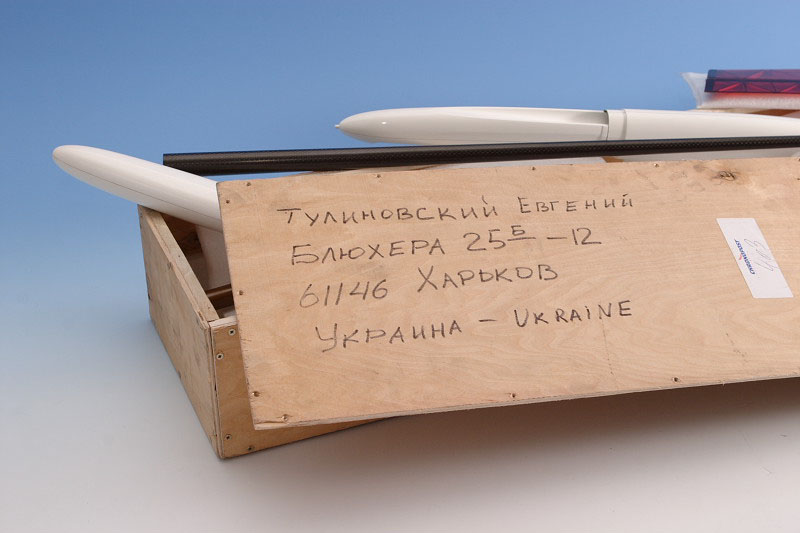 Тулиновский Евгений
Блюхера 25Б-12
61146 Харьков
Украина - UKRAINE